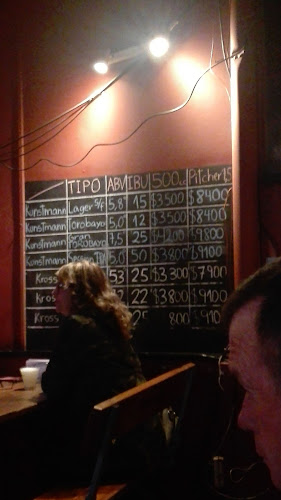 TIPO ABV IBU 500cc Pitcher 1,5
Kunstmann Lager S/F 5,8° 15 $3500 $8400
Kunstmann Torobayo 5,0° 12 $3500 $8400
Kunstmann Gran Torobayo 7,5 25 $4200 $9800
Kunstmann 5,0 50 $3800 $9100
Kross 53 25 $3300 $7900
Kross 22 $3800 $9100
Kross 25 800